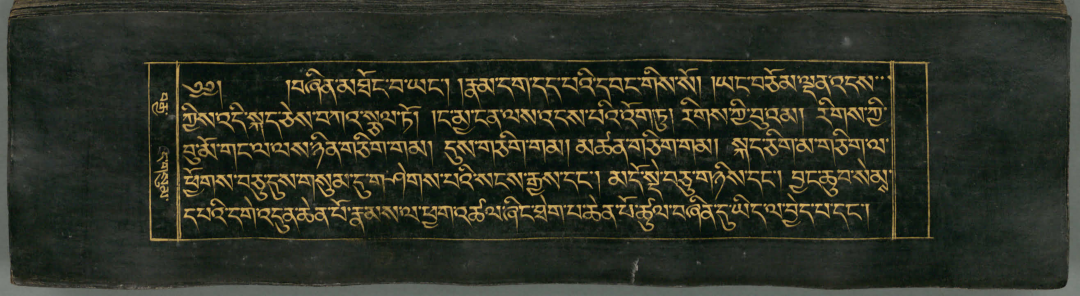 ༄༅། །བཞིན་མ་ཐོང་བ་ཡང་། །རྣམ་དག་དད་པའི་དབང་གིས་སོ། །ཡང་བཅོམ་ལྡན་འདས་
ཀྱིས་འདི་སྐད་ཅེས་བཀའ་སྩལ་ཏོ། །ང་མྱ་ངན་ལས་འདས་པའི་འོག་ཏུ། རིགས་ཀྱི་བུ་འམ། རིགས་ཀྱི་
བུ་མོ་གང་ལ་ལས་ཉིན་གཅིག་གམ། དུས་གཅིག་གམ། མཚན་གཅིག་གམ། སྐད་ཅིག་མ་གཅིག་ལ་
ཕྱོགས་བཅུ་དུས་གསུམ་དུ་གཤེགས་པའི་སངས་རྒྱས་དང་། མདོ་སྡེ་བཅུ་གཉིས་དང་། བྱང་ཆུབ་སེམས་
དཔའི་དགེ་འདུན་ཆེན་པོ་རྣམས་ལ་ཕྱག་འཚལ་ཞིང་ཐེག་པ་ཆེན་པོ་ཚུལ་བཞིན་དུ་ཡིད་ལ་བྱེད་པ་དང་།